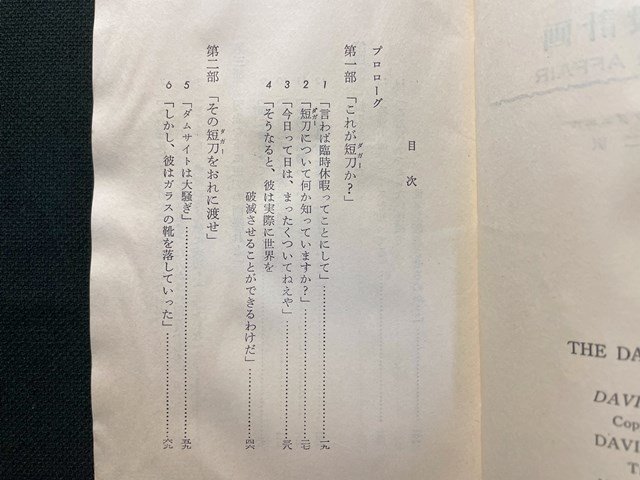 目次
プロローグ
第一部 「これが短刀か？」
ダガー
1 「言わば臨時休暇ってことにして」……一九
2 「短刀について何か知っていますか？」……二七
ダガー
3 「今日って日は、まったくついてねえや」……三八
4 「そうなると、彼は実際に世界を
破滅させることができるわけだ」……四六
第二部 「その短刀をおれに渡せ」
ダガー
5 「ダムサイトは大騒ぎ」……五九
6 「しかし、彼はガラスの靴を落していった」……六九
計画
AFFAIR
THE DA
DAVI
Cop
DAVID
T